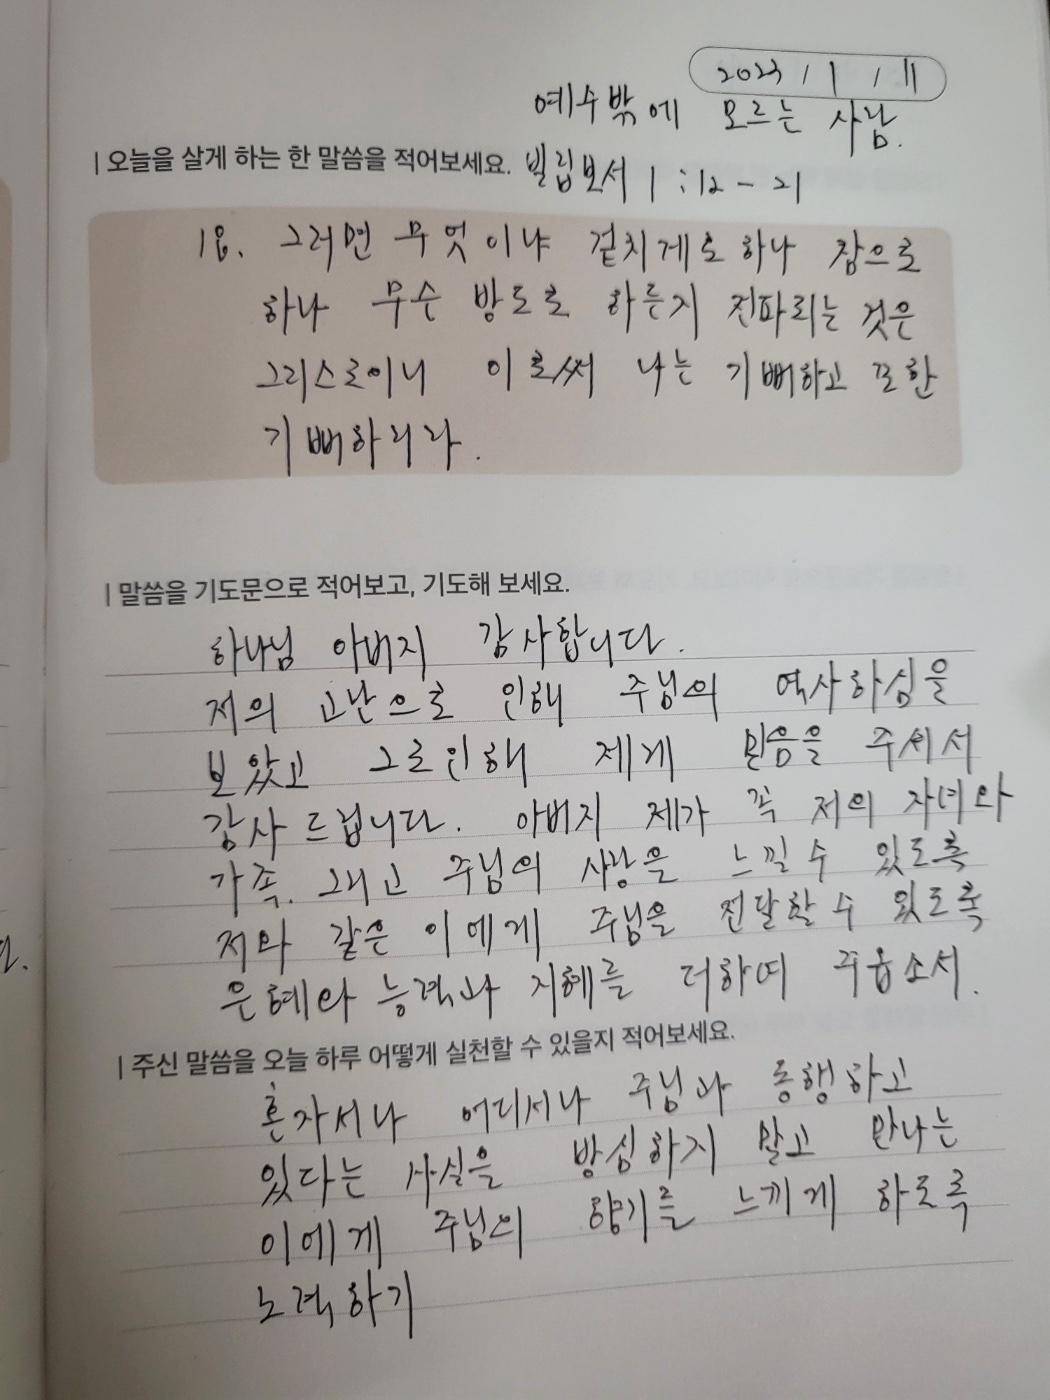 2023 / 1 / 11
예수밖에 모르는 사람.
| 오늘을 살게 하는 한 말씀을 적어보세요. 빌립보서 1 : 12 - 21
18. 그러면 무엇이냐 겉치게로 하나 참으로
하나 무슨 방도로 하든지 전파되는 것은
그리스도이니 이로써 나는 기뻐하고 또한
기뻐하리라.
| 말씀을 기도문으로 적어보고, 기도해 보세요.
하나님 아버지 감사합니다.
저의 고난으로 인해 주님의 역사하심을
보았고 그로인해 제게 믿음을 주셔서
감사 드립니다. 아버지 제가 꼭 저의 자녀와
가족. 그리고 주님의 사랑을 느낄 수 있도록
저와 같은 이에게 주님을 전달할 수 있도록
은혜와 능력과 지혜를 더하여 주옵소서.
| 주신 말씀을 오늘 하루 어떻게 실천할 수 있을지 적어보세요.
혼자서나 어디서나 주님과 동행하고
있다는 사실을 방심하지 말고 만나는
이에게 주님의 향기를 느끼게 하도록
노력하기